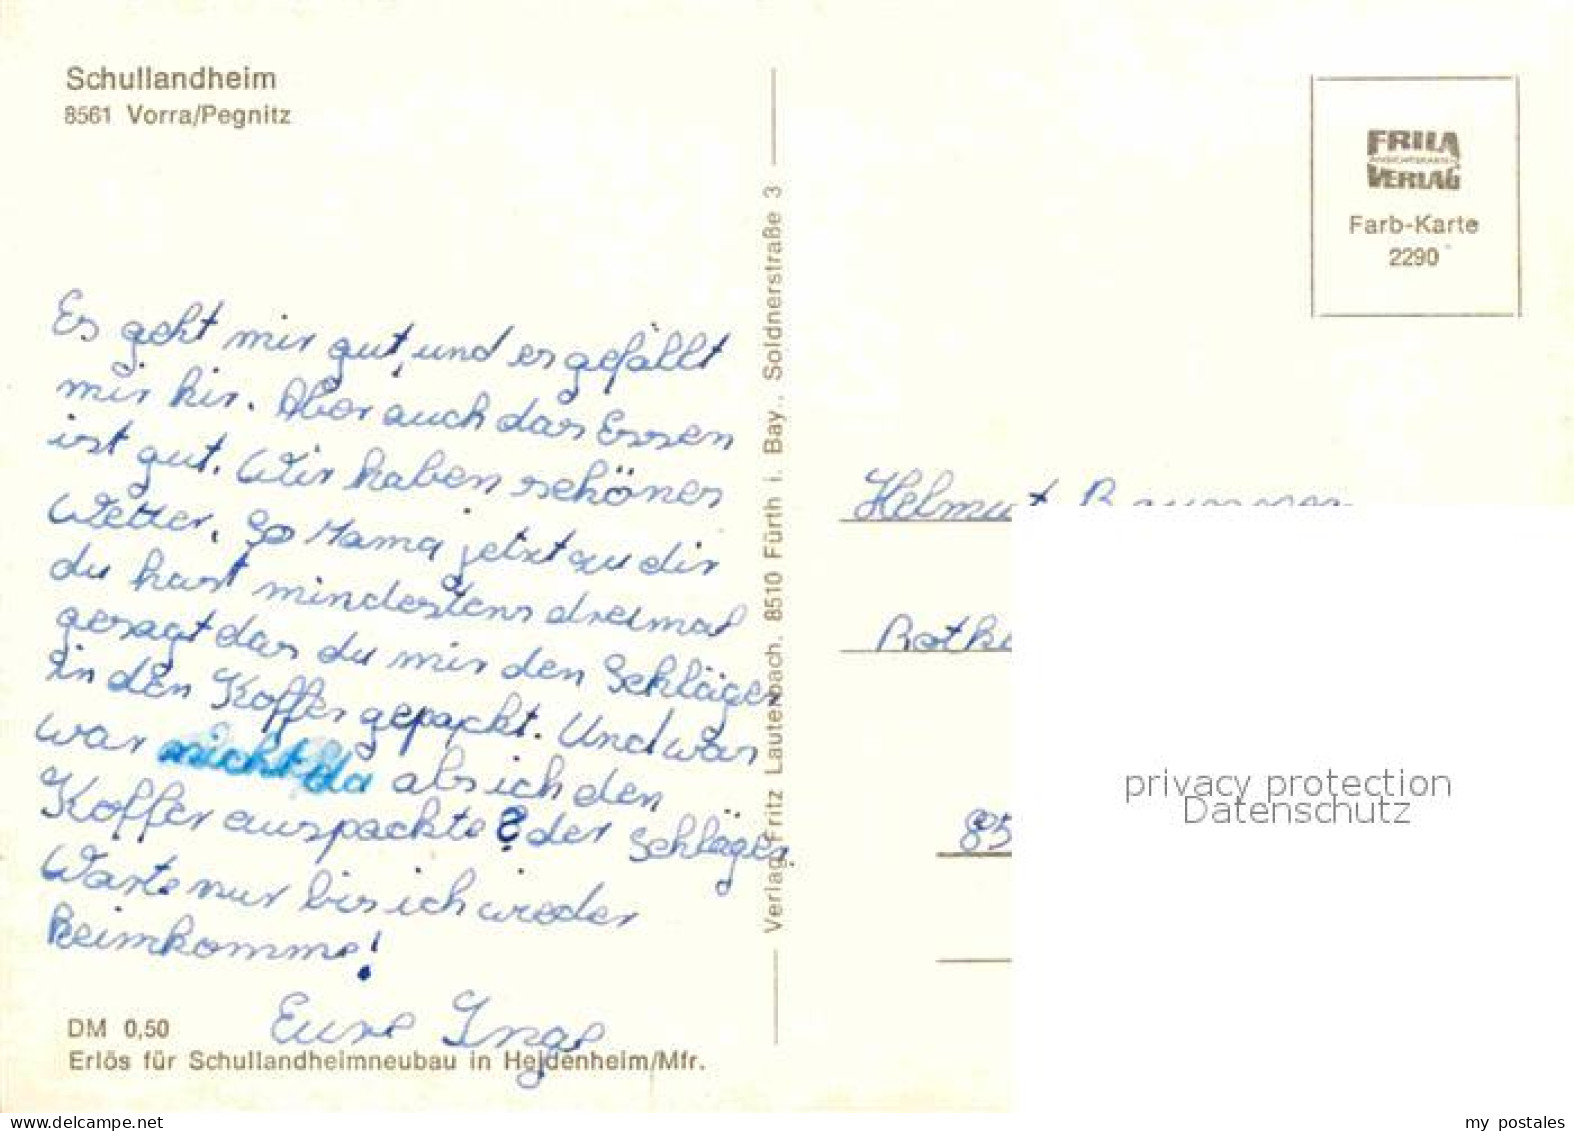 Schullandheim
8561 Vorra/Pegnitz
Es geht mir gut, und es gefällt
mir hir. Aber auch das Essen
ist gut. Wir haben schönes
Wetter. So Mama jetzt zu dir
du hast mindestens dreimal
gesagt das du mir den Schläger
in den Koffer gepackt. Und was
war nicht da als ich den
Koffer auspackte? der Schläger.
Warte nur bis ich wieder
heimkomme!
Eure Inge
DM 0,50
Erlös für Schullandheimneubau in Heidenheim/Mfr.
Verlag Fritz Lauterbach, 8510 Fürth i. Bay., Soldnerstraße 3
FRILA
ANSICHTSKARTEN
VERLAG
Farb-Karte
2290
Helmut
85
privacy protection
Datenschutz
www.delcampe.net
my_postales